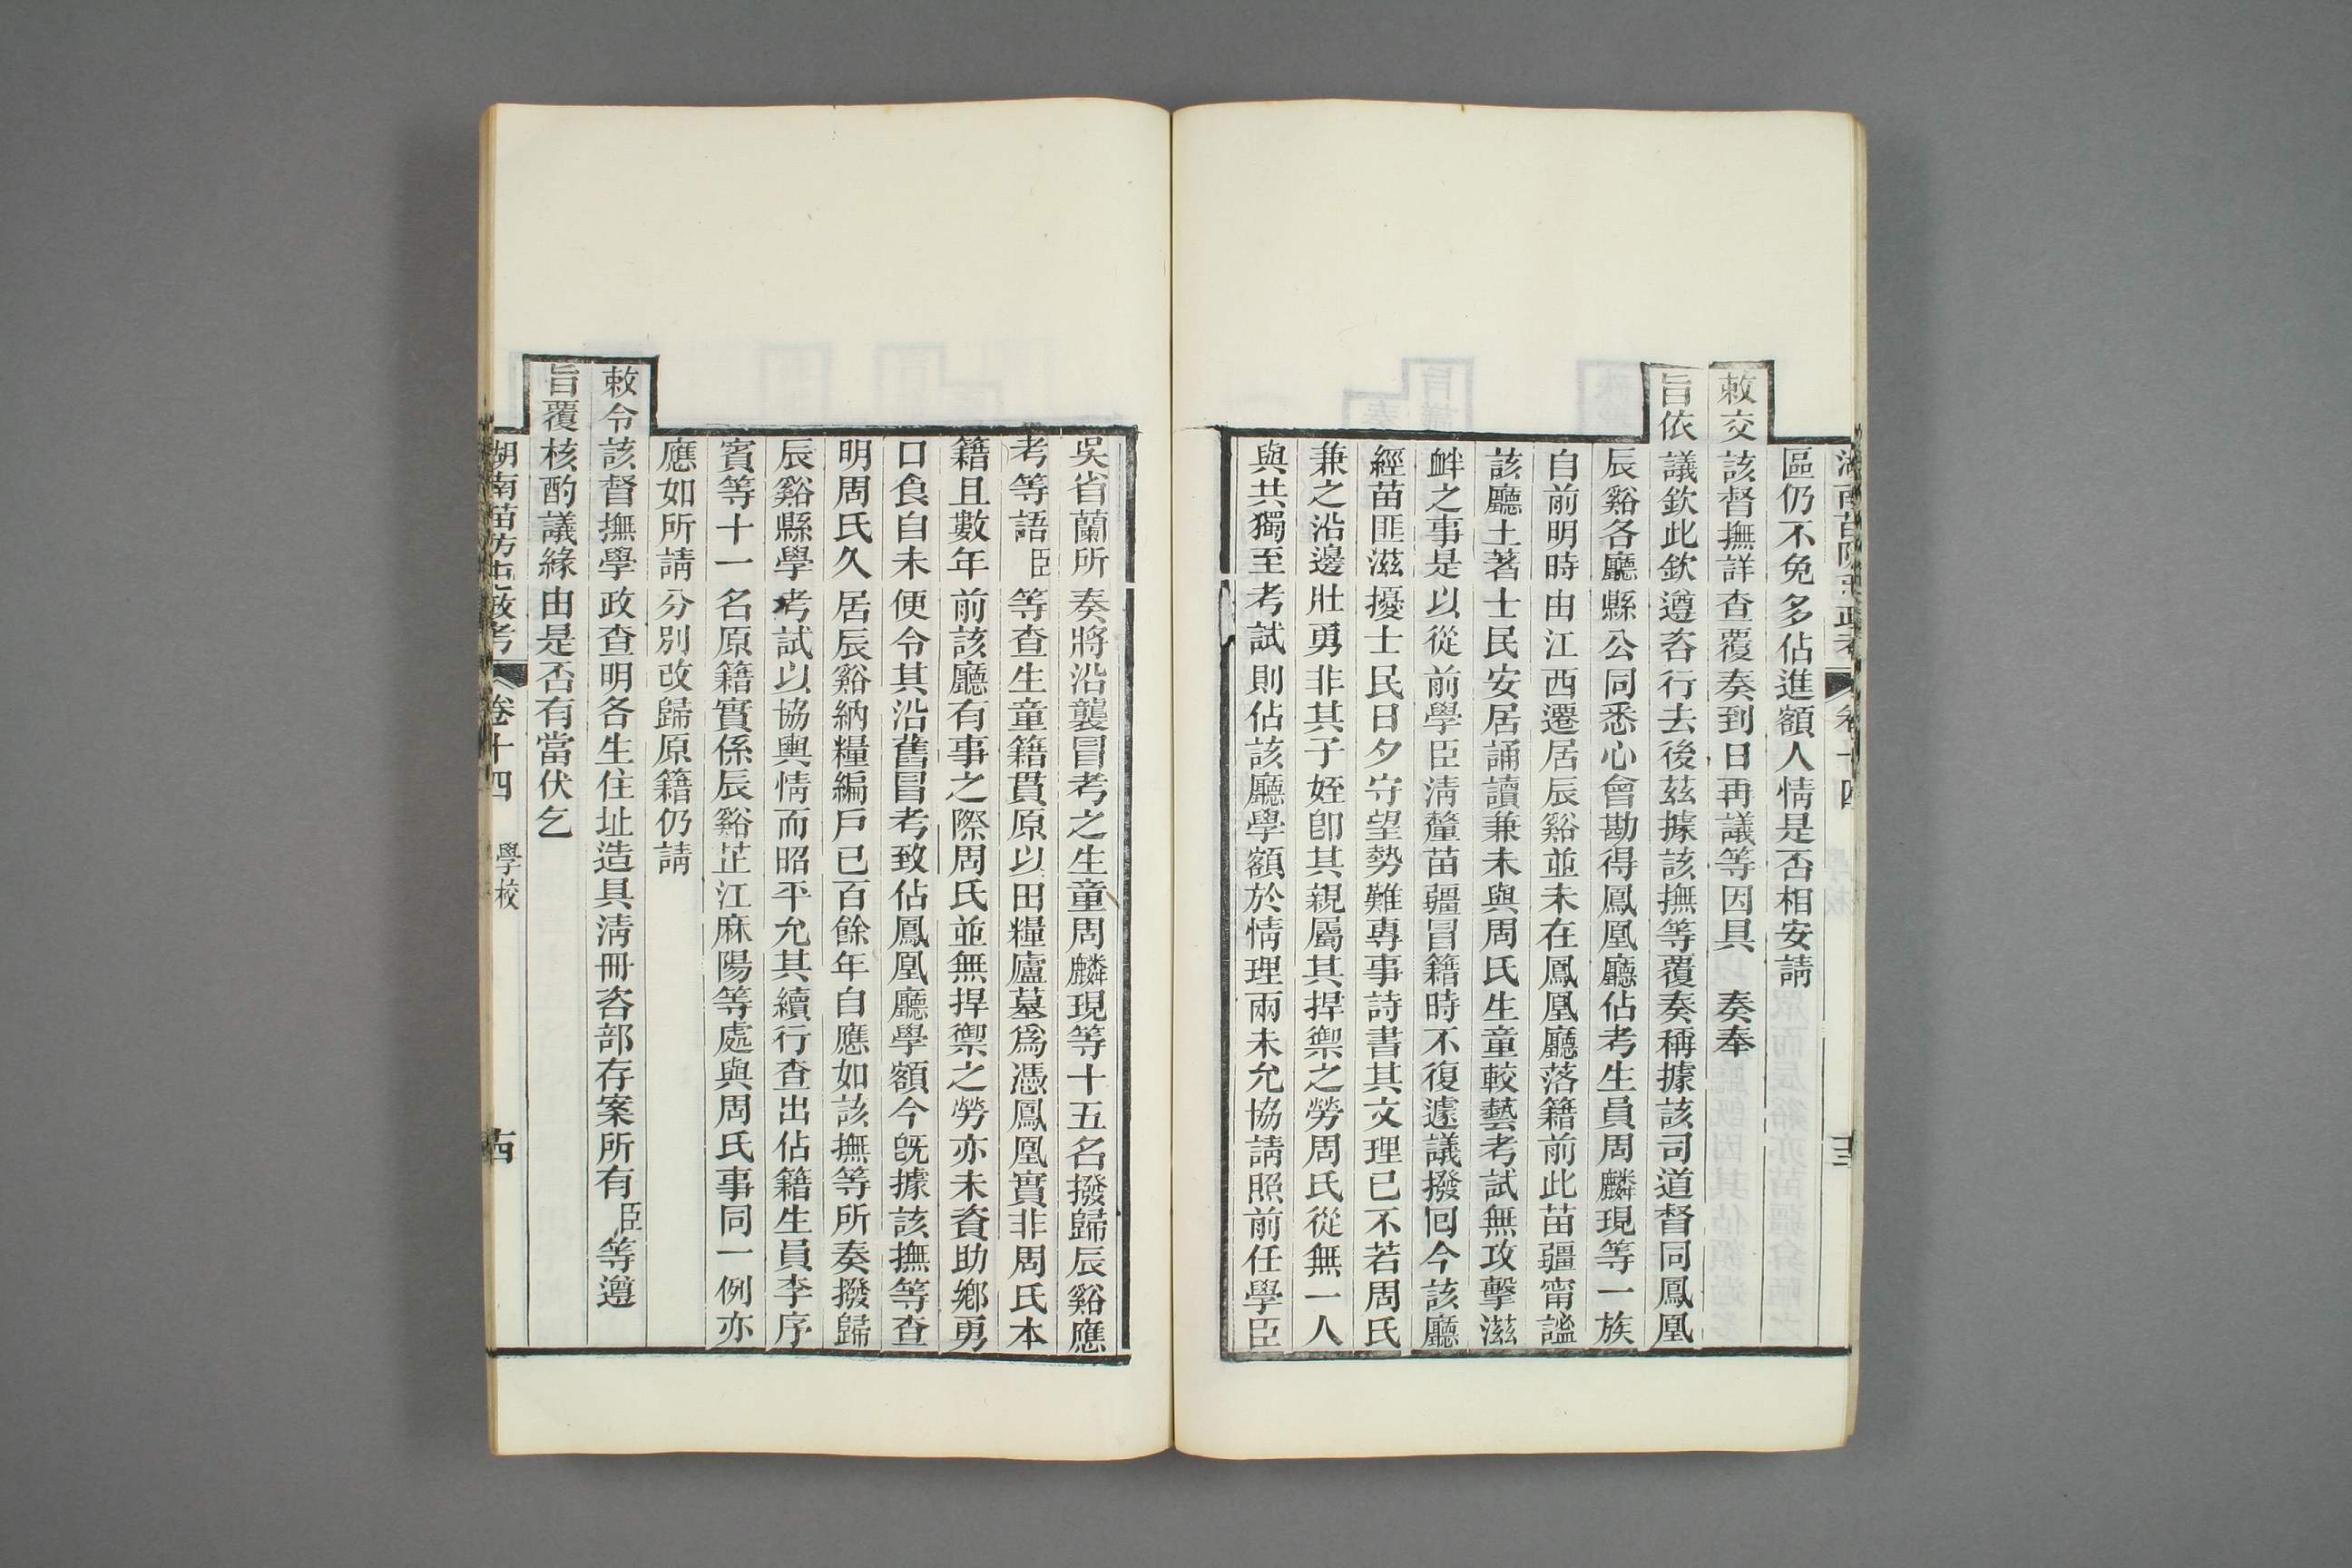 湖南苗防屯政考 卷十四 十三
區仍不免多佔進額人情是否相安請
敕交該督撫詳查覆奏到日再議等因具 奏奉
旨依議欽此欽遵咨行去後茲據該撫等覆奏稱據該司道督同鳳凰
辰谿各廳縣公同悉心會勘得鳳凰廳佔考生員周麟現等一族
自前明時由江西遷居辰谿並未在鳳凰廳落籍前此苗疆甯謐
該廳土著士民安居誦讀兼未與周氏生童較藝考試無攻擊滋
衅之事是以從前學臣清釐苗疆冒籍時不復遽議撥回今該廳
經苗匪滋擾士民日夕守望勢難專事詩書其文理已不若周氏
兼之沿邊壯勇非其子姪卽其親屬其捍禦之勞周氏從無一人
與共獨至考試則佔該廳學額於情理兩未允協請照前任學臣
吳省蘭所奏將沿襲冒考之生童周麟現等十五名撥歸辰谿應
考等語臣等查生童籍貫原以田糧廬墓爲憑鳳凰實非周氏本
籍且數年前該廳有事之際周氏並無捍禦之勞亦未資助鄉勇
口食自未便令其沿舊冒考致佔鳳凰廳學額今既據該撫等查
明周氏久居辰谿納糧編戸已百餘年自應如該撫等所奏撥歸
辰谿縣學考試以協輿情而昭平允其續行查出佔籍生員李序
賓等十一名原籍實係辰谿芷江麻陽等處與周氏事同一例亦
應如所請分別改歸原籍仍請
敕令該督撫學政查明各生住址造具清冊咨部存案所有臣等遵
旨覆核酌議緣由是否有當伏乞
湖南苗防屯政考 卷十四 學校 十四